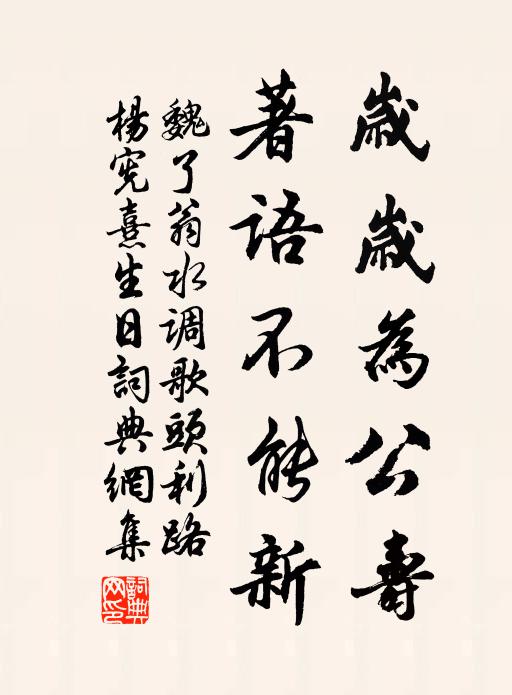 歲歲為公壽
著語不能新
魏了翁水调歌頭利路
楊宪熹生日詞典網集
詞典网印